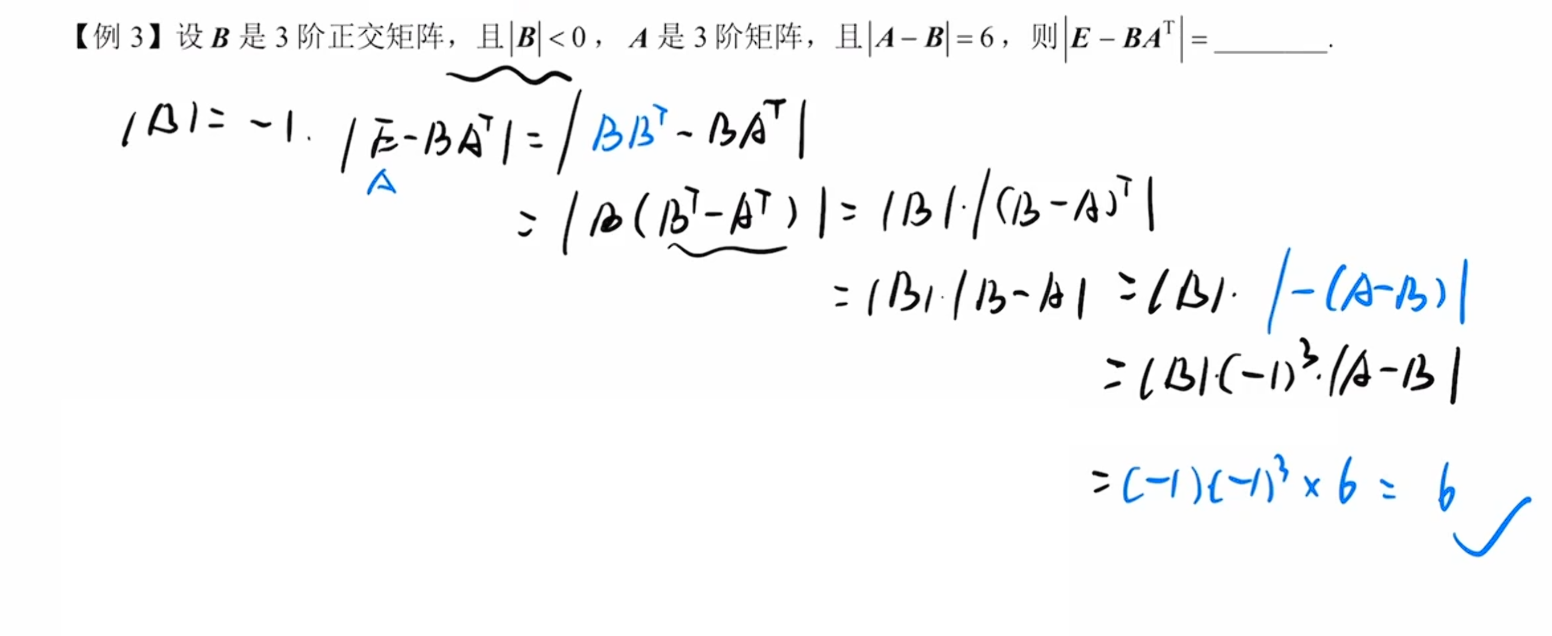 【例 3】设 B 是 3 阶正交矩阵，且|B|<0，A 是 3 阶矩阵，且|A−B|=6，则|E−BAᵀ|=________.
|B|=-1. |E-BAᵀ|=|BBᵀ-BAᵀ|
A
=|B(Bᵀ-Aᵀ)|=|B|·|(B-A)ᵀ|
=|B|·|B-A|=|B|·|-(A-B)|
=|B|·(-1)³·|A-B|
=(-1)(-1)³×6=6